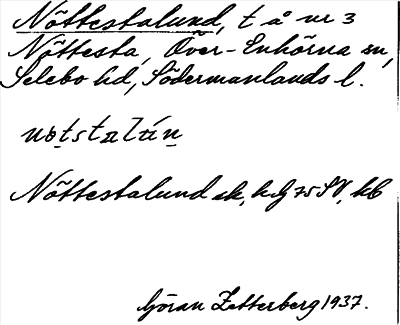 Nöttestalund, t å nr 3
Nöttesta, Över-Enhörna sn,
Selebo hd, Södermanlands l.
Nöttestalund ek, hd 75 SV, kb
Göran Zetterberg 1937.